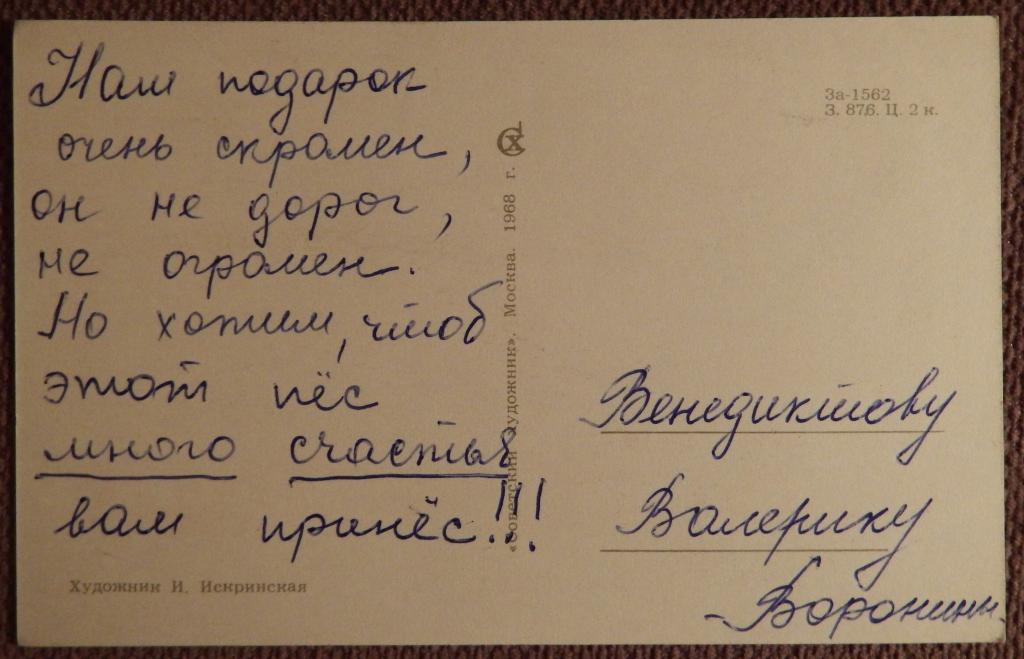 Наш подарок
очень скромен,
он не дорог,
не огромен.
Но хотим, чтоб
этот пёс
много счастья
вам принёс!!!
Художник И. Искринская
«Советский художник». Москва. 1968 г.
СХ
За-1562
З. 876. Ц. 2 к.
Венедиктову
Валерику
-Воронины.